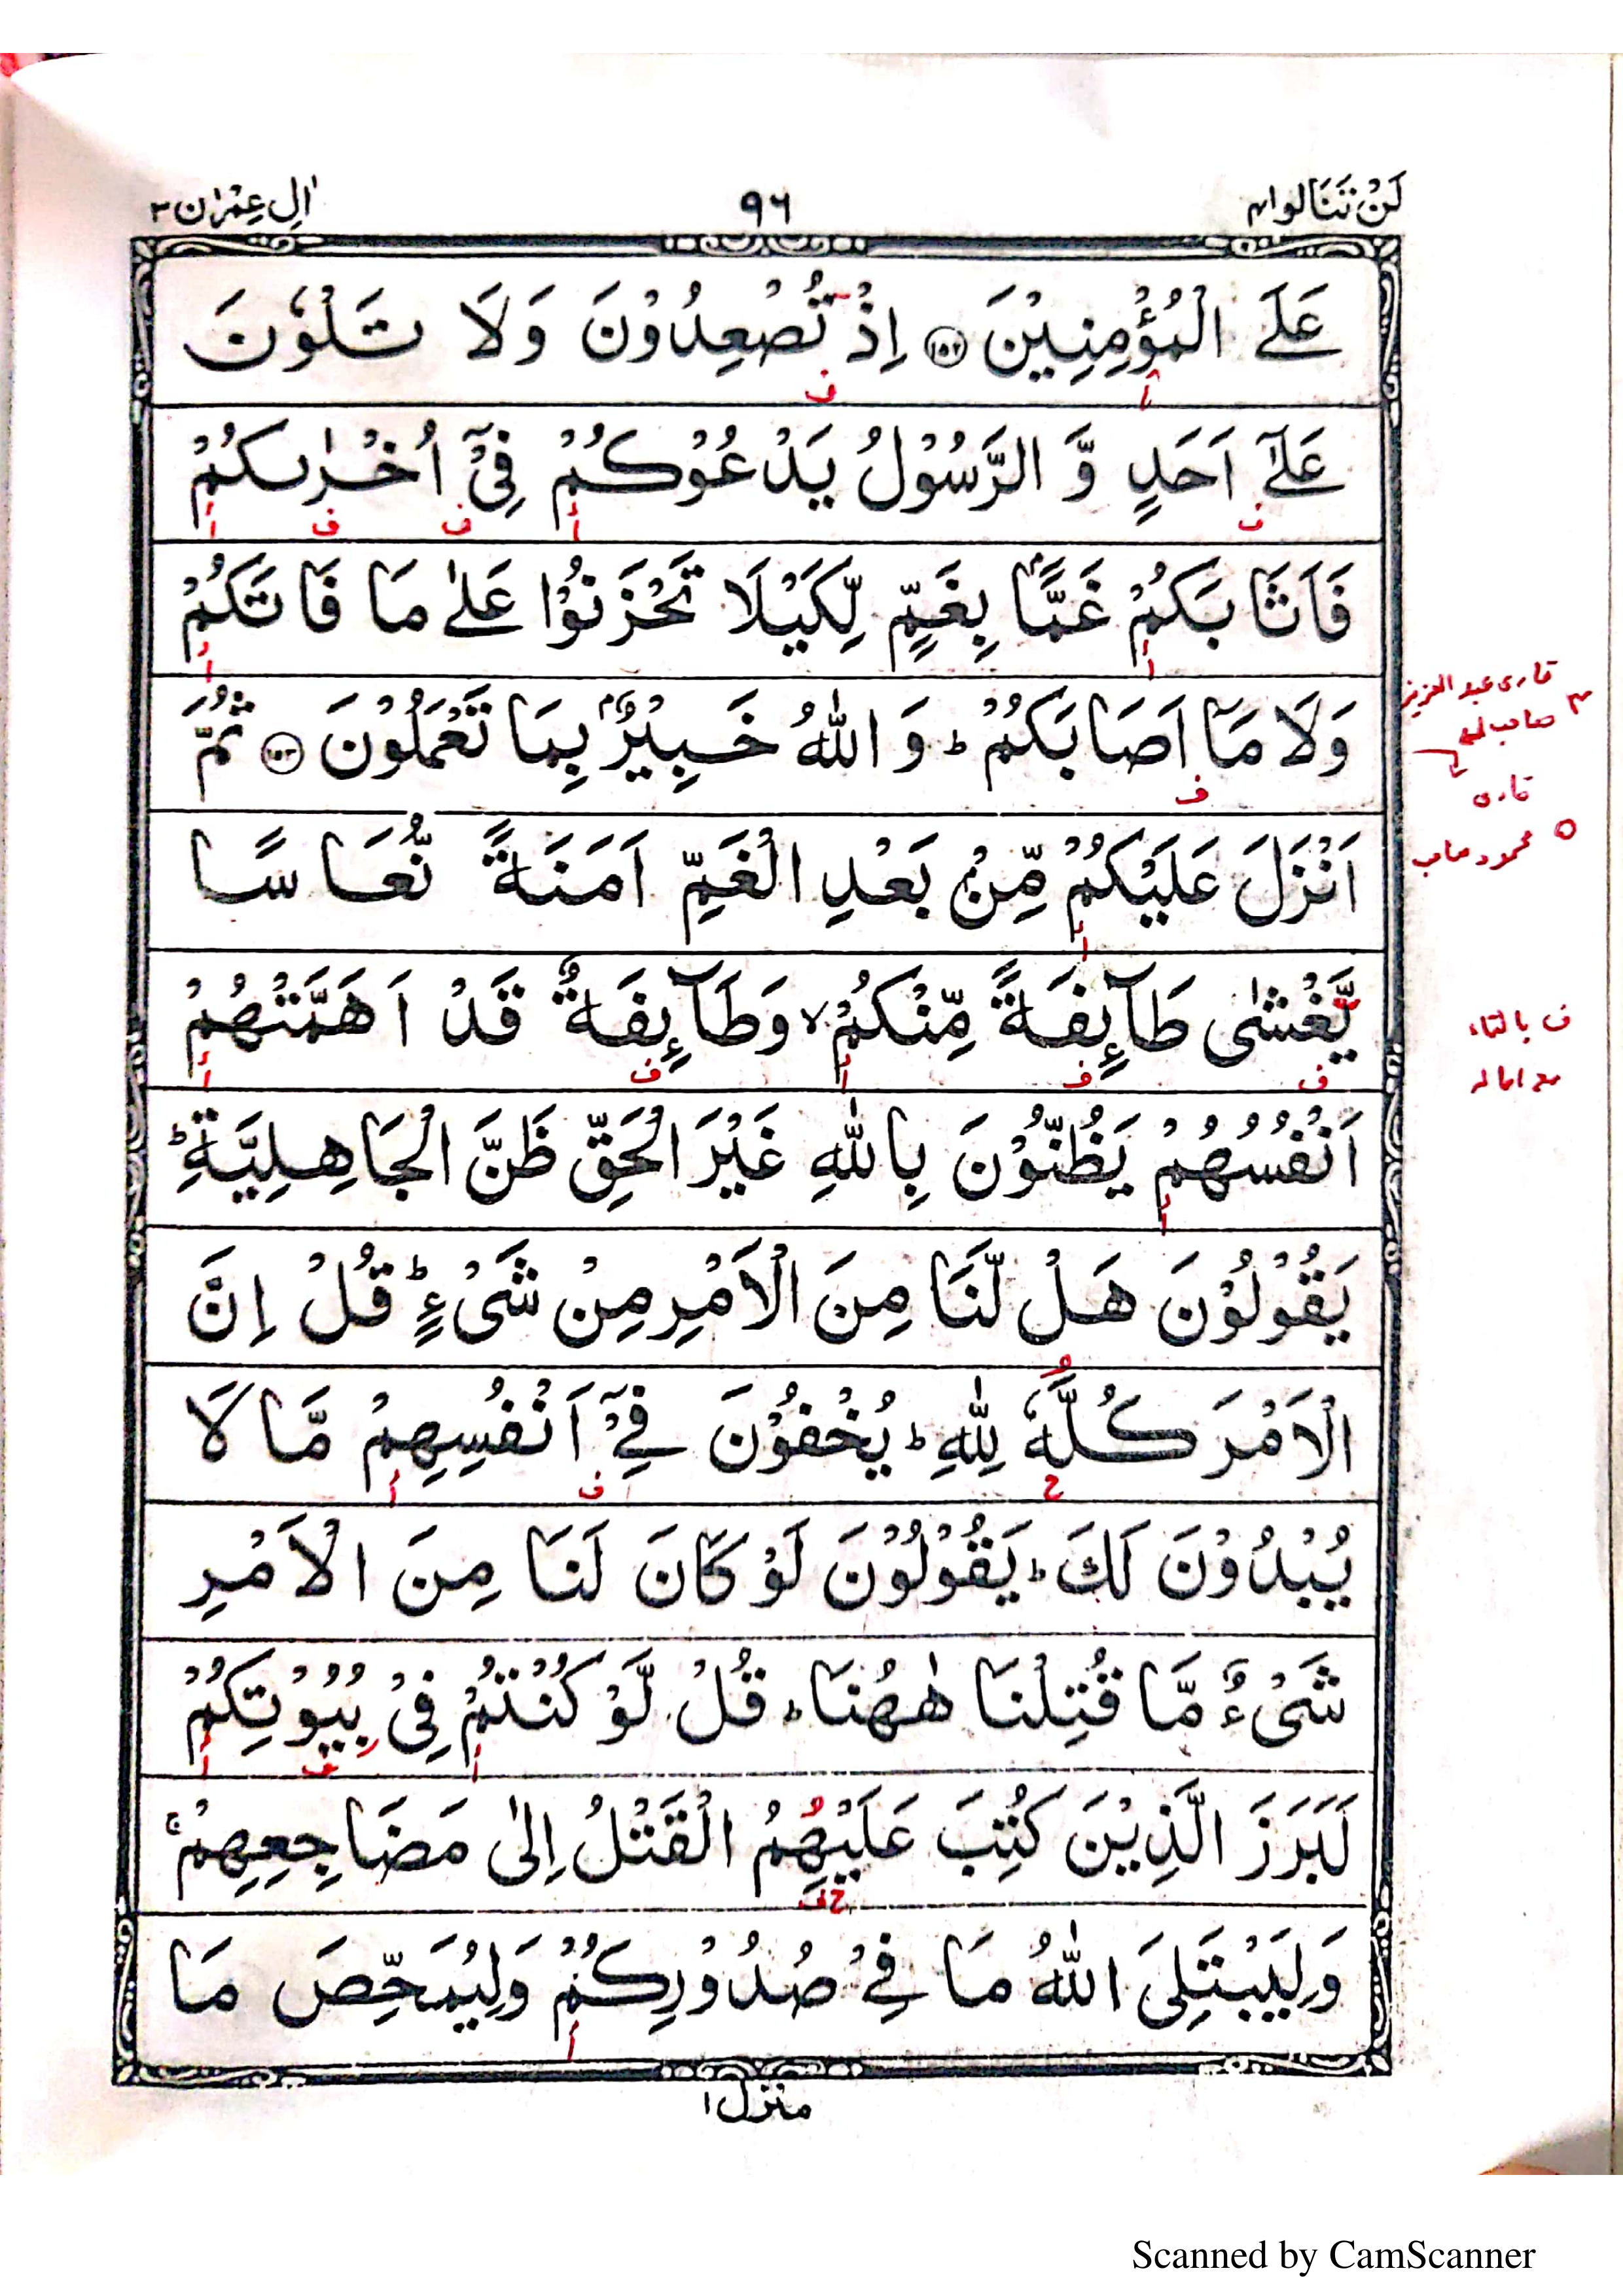 لَنْ تَنَالُوا ٤
٩٦
اٰلِ عِمْرٰن ٣
عَلَى الْمُؤْمِنِيْنَ ﴿١٥٢﴾ اِذْ تُصْعِدُوْنَ وَلَا تَلْوٗنَ
عَلٰٓى اَحَدٍ وَّ الرَّسُوْلُ يَدْعُوْكُمْ فِيْٓ اُخْرٰىكُمْ
فَاَثَابَكُمْ غَمًّۢا بِغَمٍّ لِّكَيْلَا تَحْزَنُوْا عَلٰى مَا فَاتَكُمْ
وَلَا مَآ اَصَابَكُمْ ؕ وَ اللّٰهُ خَبِيْرٌۢ بِمَا تَعْمَلُوْنَ ﴿١٥٣﴾ ثُمَّ
اَنْزَلَ عَلَيْكُمْ مِّنْۢ بَعْدِ الْغَمِّ اَمَنَةً نُّعَاسًا
يَّغْشٰى طَآئِفَةً مِّنْكُمْ ۙ وَطَآئِفَةٌ قَدْ اَهَمَّتْهُمْ
اَنْفُسُهُمْ يَظُنُّوْنَ بِاللّٰهِ غَيْرَ الْحَقِّ ظَنَّ الْجَاهِلِيَّةِ ؕ
يَقُوْلُوْنَ هَلْ لَّنَا مِنَ الْاَمْرِ مِنْ شَيْءٍ ؕ قُلْ اِنَّ
الْاَمْرَ كُلَّهٗ لِلّٰهِ ؕ يُخْفُوْنَ فِيْٓ اَنْفُسِهِمْ مَّا لَا
يُبْدُوْنَ لَكَ ؕ يَقُوْلُوْنَ لَوْ كَانَ لَنَا مِنَ الْاَمْرِ
شَيْءٌ مَّا قُتِلْنَا هٰهُنَا ؕ قُلْ لَّوْ كُنْتُمْ فِيْ بُيُوْتِكُمْ
لَبَرَزَ الَّذِيْنَ كُتِبَ عَلَيْهِمُ الْقَتْلُ اِلٰى مَضَاجِعِهِمْ ۚ
وَلِيَبْتَلِيَ اللّٰهُ مَا فِيْ صُدُوْرِكُمْ وَلِيُمَحِّصَ مَا
منزل ١
قاری عبد العزیز
صاحب
قاری
محمود صاحب
ف بالتاء
مع امالہ
Scanned by CamScanner